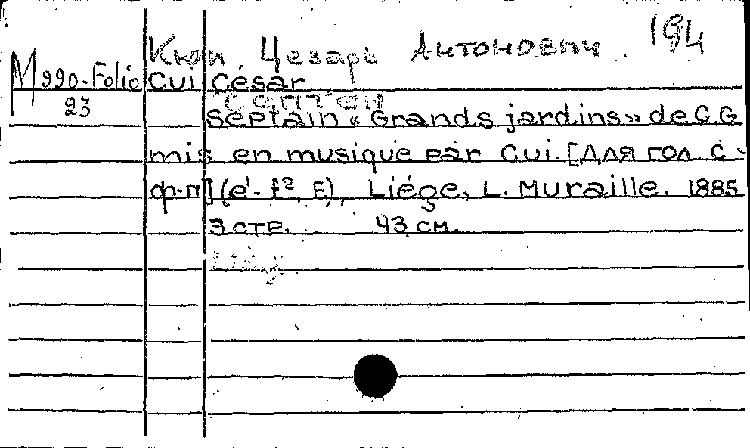 Кюи, Цезарь Антонович. 194
M 990-Folio Cui César
23
Septain « Grands jardins » de C.G
mis en musique par Cui. [Для гол. с
ф-п] (e¹- f², E), Liége, L. Muraille. 1885
3 стр. 43 см.